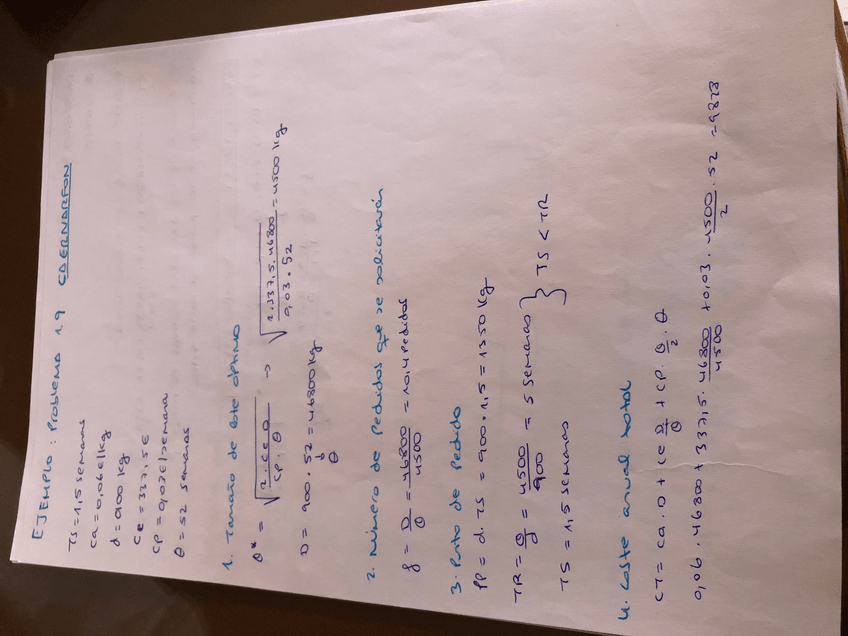 EJEMPLO: Problema 1.9 CAERNARFON
TS = 1,5 semanas
ca = 0,06 €/kg
d = 900 kg
Ce = 337,5 €
Cp = 0,03 €/semana
θ = 52 semanas
1. Tamaño de lote óptimo
Q* = √(2·Ce·D / Cp·θ) → √(2·337,5·46800 / 0,03·52) = 4500 kg
D = 900·52 = 46800 kg
θ
2. Número de pedidos que se solicitarán
f = D/Q = 46800/4500 = 10,4 pedidos
3. Punto de Pedido
PP = d·TS = 900·1,5 = 1350 kg
TR = Q/d = 4500/900 = 5 semanas } TS < TR
TS = 1,5 semanas
4. Coste anual total
CT = Ca·D + Ce D/Q + Cp·Q/2·θ
0,06·46800 + 337,5·46800/4500 + 0,03·4500/2·52 = 9828